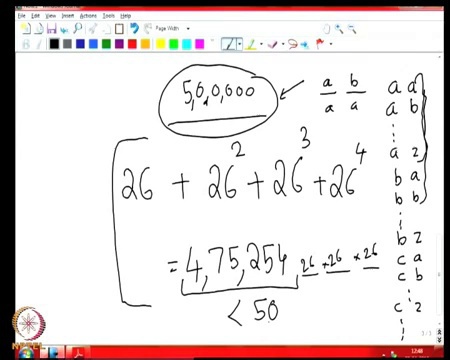 File Edit View Insert Actions Tools Help
Page Width
5,0,0,000
a b a a
a a a b
a z
b a
b b
b z
c a
c b
c z
26 + 26² + 26³ + 26⁴
= 4,75,254 26 × 26 × 26
< 50
3/3
12:48